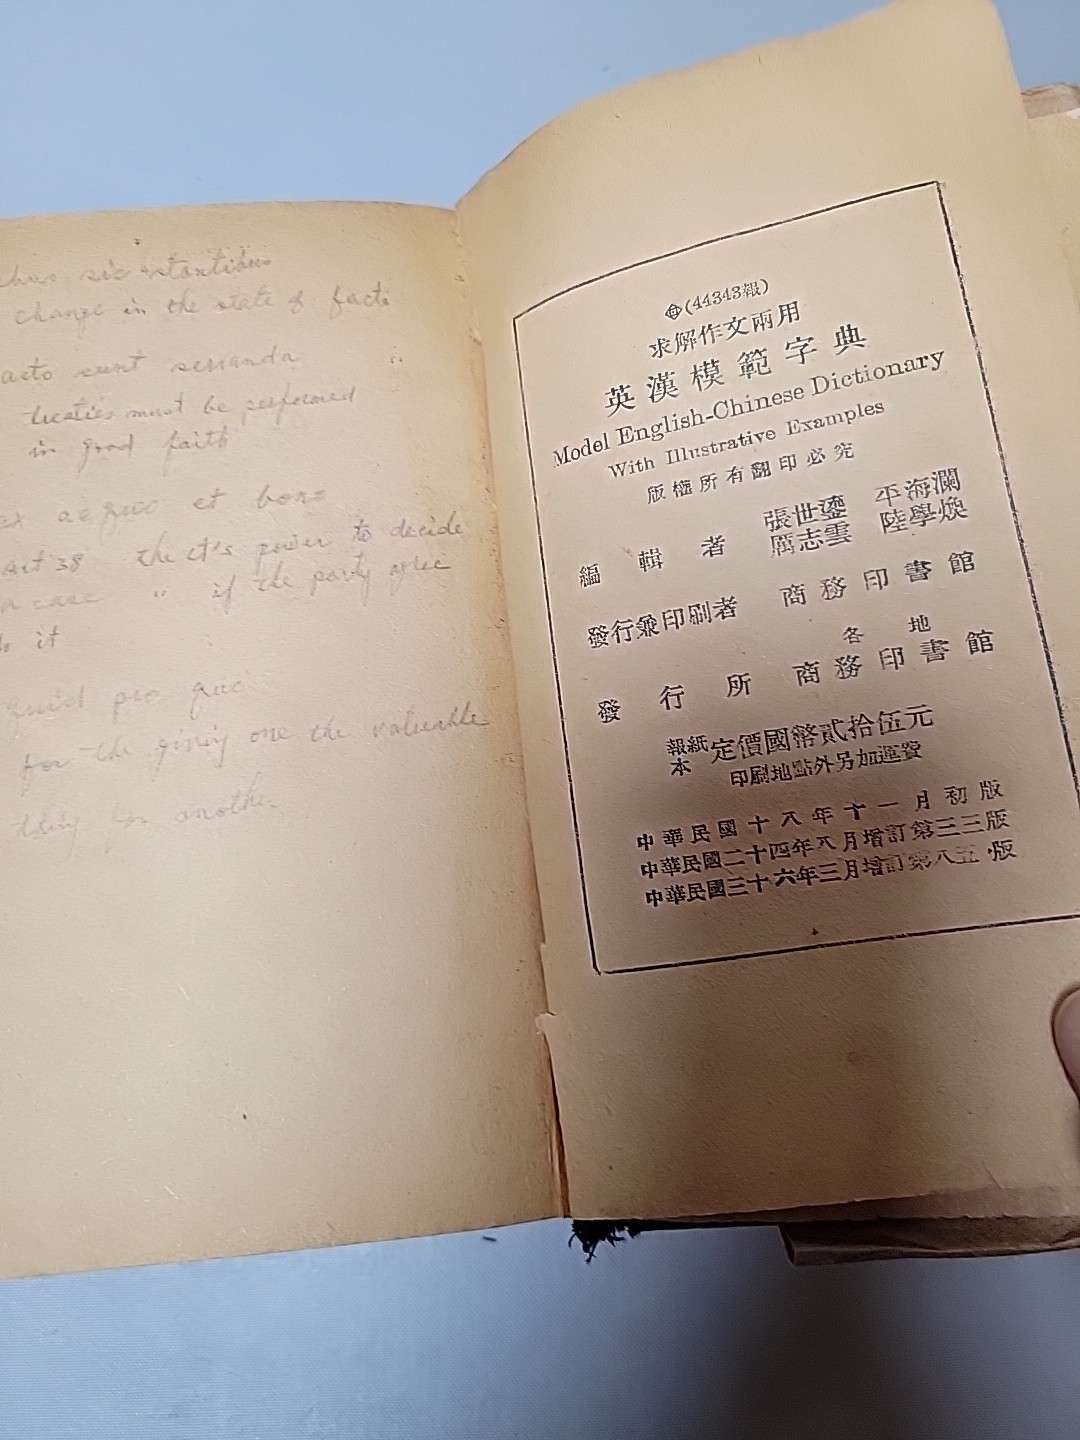 rebus sic stantibus
change in the state of facts
acta sunt servanda
treaties must be performed
in good faith
ex aequo et bono
Art 38 the ct's power to decide
a case " if the party agree
to it
quid pro quo
for the giving one the valuable
thing for another
(44343報)
求解作文兩用
英漢模範字典
Model English-Chinese Dictionary
With Illustrative Examples
版權所有翻印必究
編輯者 張世鎏 平海瀾
厲志雲 陸學煥
發行兼印刷者 商務印書館
各地
發行所 商務印書館
報紙本 定價國幣貳拾伍元
印刷地點外另加運費
中華民國十八年十一月初版
中華民國二十四年八月增訂第三三版
中華民國三十六年三月增訂第八五版